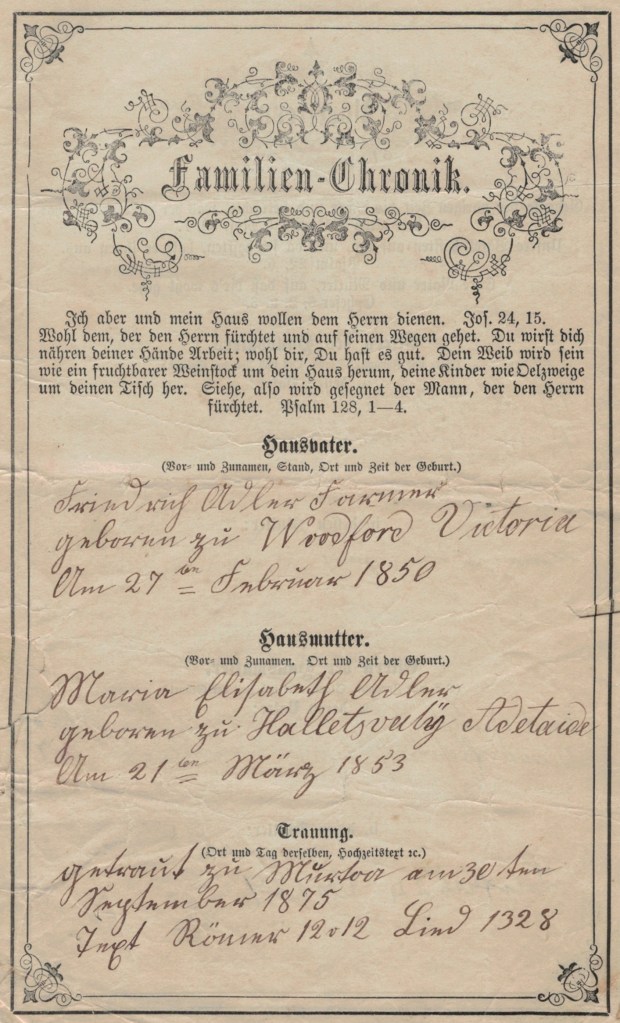 Familien-Chronik.
Ich aber und mein Haus wollen dem Herrn dienen. Jos. 24, 15.
Wohl dem, der den Herrn fürchtet und auf seinen Wegen gehet. Du wirst dich
nähren deiner Hände Arbeit; wohl dir, Du hast es gut. Dein Weib wird sein
wie ein fruchtbarer Weinstock um dein Haus herum, deine Kinder wie Oelzweige
um deinen Tisch her. Siehe, also wird gesegnet der Mann, der den Herrn
fürchtet. Psalm 128, 1—4.
Hausvater.
(Vor- und Zunamen, Stand, Ort und Zeit der Geburt.)
Friedrich Adler Farmer
geboren zu Woodford Victoria
Am 27 ten Februar 1850
Hausmutter.
(Vor- und Zunamen. Ort und Zeit der Geburt.)
Maria Elisabeth Adler
geboren zu Adelaide
Am 21 ten März 1853
Trauung.
(Ort und Tag derselben, Hochzeitstext ꝛc.)
getraut zu Murtoa am 30 ten
September 1875
Text Römer 12 v 12 Lied 1328